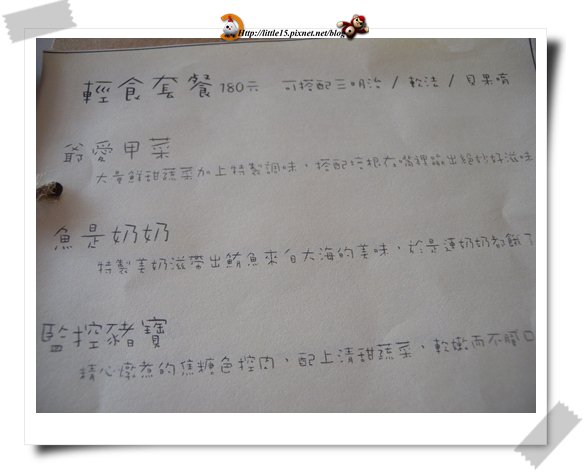 Http://little15.pixnet.net/blog
輕食套餐 180元 可搭配三明治 / 軟法 / 貝果唷
爺愛甲菜
大量鮮甜蔬菜加上特製調味，搭配培根在嘴裡蹦出絕妙好滋味
魚是奶奶
特製美奶滋帶出鮪魚來自大海的美味，於是連奶奶都餓了
監控豬寶
精心燉煮的焦糖色控肉，配上清甜蔬菜，軟嫩而不膩口